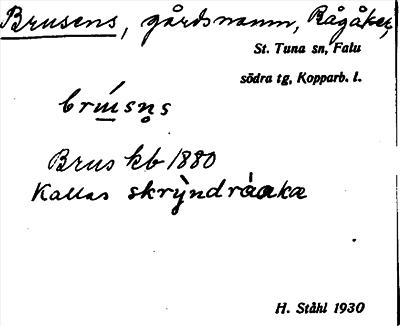 Brusens, gårdsnamn, Rågåker,
St. Tuna sn, Falu
södra tg, Kopparb. l.
brɯ́sn̥s
Brus kb 1880
Kallas skrỳndråaka
H. Ståhl 1930